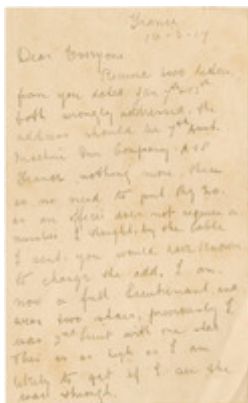 France
16-3-17
Dear Everyone
Received two letters
from you dated Jan 7th & 21st
both wrongly addressed. the
address should be 7th Aust.
Machine Gun Company. A.I.F
France nothing more, there
is no need to put Reg No.
as an officer does not require a
number I thought by the cable
I sent you would have known
to change the add, I am
now a full Lieutenant and
wear two stars, previously I
was 2nd Lieut with one star
This is as high as I am
likely to get if I see the
war through.